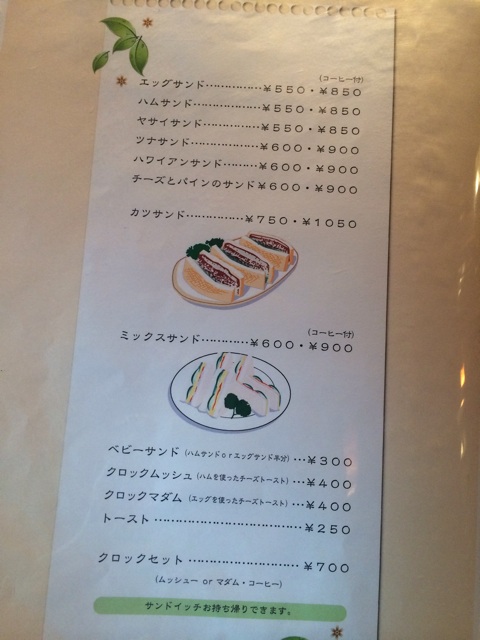 (コーヒー付)
エッグサンド……………¥550・¥850
ハムサンド……………¥550・¥850
ヤサイサンド…………¥550・¥850
ツナサンド……………¥600・¥900
ハワイアンサンド………¥600・¥900
チーズとパインのサンド¥600・¥900
カツサンド……………¥750・¥1050
(コーヒー付)
ミックスサンド…………¥600・¥900
ベビーサンド(ハムサンドorエッグサンド半分)…¥300
クロックムッシュ(ハムを使ったチーズトースト)…¥400
クロックマダム(エッグを使ったチーズトースト)…¥400
トースト……………………………¥250
クロックセット……………………¥700
(ムッシュー or マダム・コーヒー)
サンドイッチお持ち帰りできます。